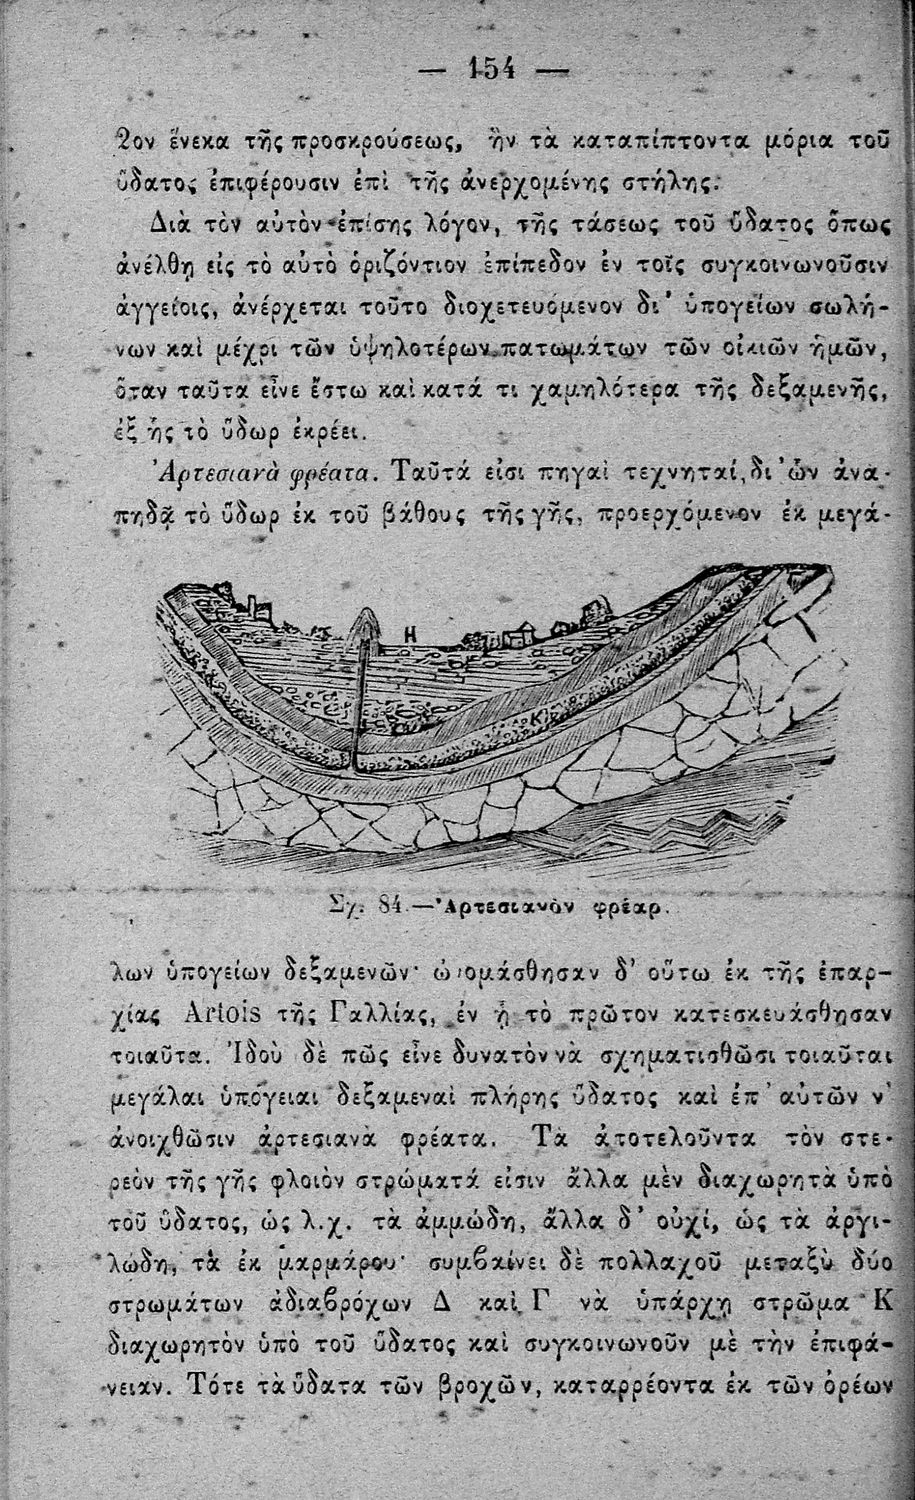 — 154 —
2ον ἕνεκα τῆς προσκρούσεως, ἣν τὰ καταπίπτοντα μόρια τοῦ
ὕδατος ἐπιφέρουσιν ἐπὶ τῆς ἀνερχομένης στήλης.
Διὰ τὸν αὐτὸν ἐπίσης λόγον, τῆς τάσεως τοῦ ὕδατος ὅπως
ἀνέλθῃ εἰς τὸ αὐτὸ ὁριζόντιον ἐπίπεδον ἐν τοῖς συγκοινωνοῦσιν
ἀγγείοις, ἀνέρχεται τοῦτο διοχετευόμενον δι᾽ ὑπογείων σωλή-
νων καὶ μέχρι τῶν ὑψηλοτέρων πατωμάτων τῶν οἰκιῶν ἡμῶν,
ὅταν ταῦτα εἶνε ἔστω καὶ κατά τι χαμηλότερα τῆς δεξαμενῆς,
ἐξ ἧς τὸ ὕδωρ ἐκρέει.
Ἀρτεσιανὰ φρέατα. Ταῦτά εἰσι πηγαὶ τεχνηταί, δι᾽ ὧν ἀνα-
πηδᾷ τὸ ὕδωρ ἐκ τοῦ βάθους τῆς γῆς, προερχόμενον ἐκ μεγά-
Η
Κ
Σχ. 84.—Ἀρτεσιανὸν φρέαρ.
λων ὑπογείων δεξαμενῶν· ὠνομάσθησαν δ᾽ οὕτω ἐκ τῆς ἐπαρ-
χίας Artois τῆς Γαλλίας, ἐν ᾗ τὸ πρῶτον κατεσκευάσθησαν
τοιαῦτα. Ἰδοὺ δὲ πῶς εἶνε δυνατὸν νὰ σχηματισθῶσι τοιαῦται
μεγάλαι ὑπόγειαι δεξαμεναὶ πλήρης ὕδατος καὶ ἐπ᾽ αὐτῶν ν᾽
ἀνοιχθῶσιν ἀρτεσιανὰ φρέατα. Τὰ ἀποτελοῦντα τὸν στε-
ρεὸν τῆς γῆς φλοιὸν στρώματά εἰσιν ἄλλα μὲν διαχωρητὰ ὑπὸ
τοῦ ὕδατος, ὡς λ.χ. τὰ ἀμμώδη, ἄλλα δ᾽ οὐχί, ὡς τὰ ἀργι-
λώδη, τὰ ἐκ μαρμάρου· συμβαίνει δὲ πολλαχοῦ μεταξὺ δύο
στρωμάτων ἀδιαβρόχων Δ καὶ Γ νὰ ὑπάρχῃ στρῶμα Κ
διαχωρητὸν ὑπὸ τοῦ ὕδατος καὶ συγκοινωνοῦν μὲ τὴν ἐπιφά-
νειαν. Τότε τὰ ὕδατα τῶν βροχῶν, καταρρέοντα ἐκ τῶν ὀρέων